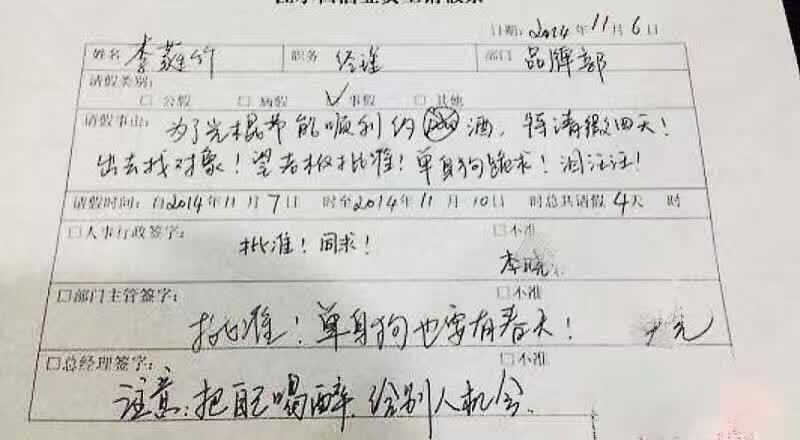 日期：2014年11月6日
姓名 李 竹 职务 经理 部门 品牌部
请假类别：
□ 公假 □ 病假 ☑ 事假 □ 其他
请假事由：为了光棍节能顺利约 酒，特请假四天！
出去找对象！望老板批准！单身狗跪求！泪汪汪！
请假时间：自2014年11月7日 时至2014年11月10日 时总共请假4天 时
□人事行政签字： □不准
批准！同求！
李晓
□部门主管签字： □不准
批准！单身狗也要有春天！
□总经理签字： □不准
注意：把自己喝醉，给别人机会。